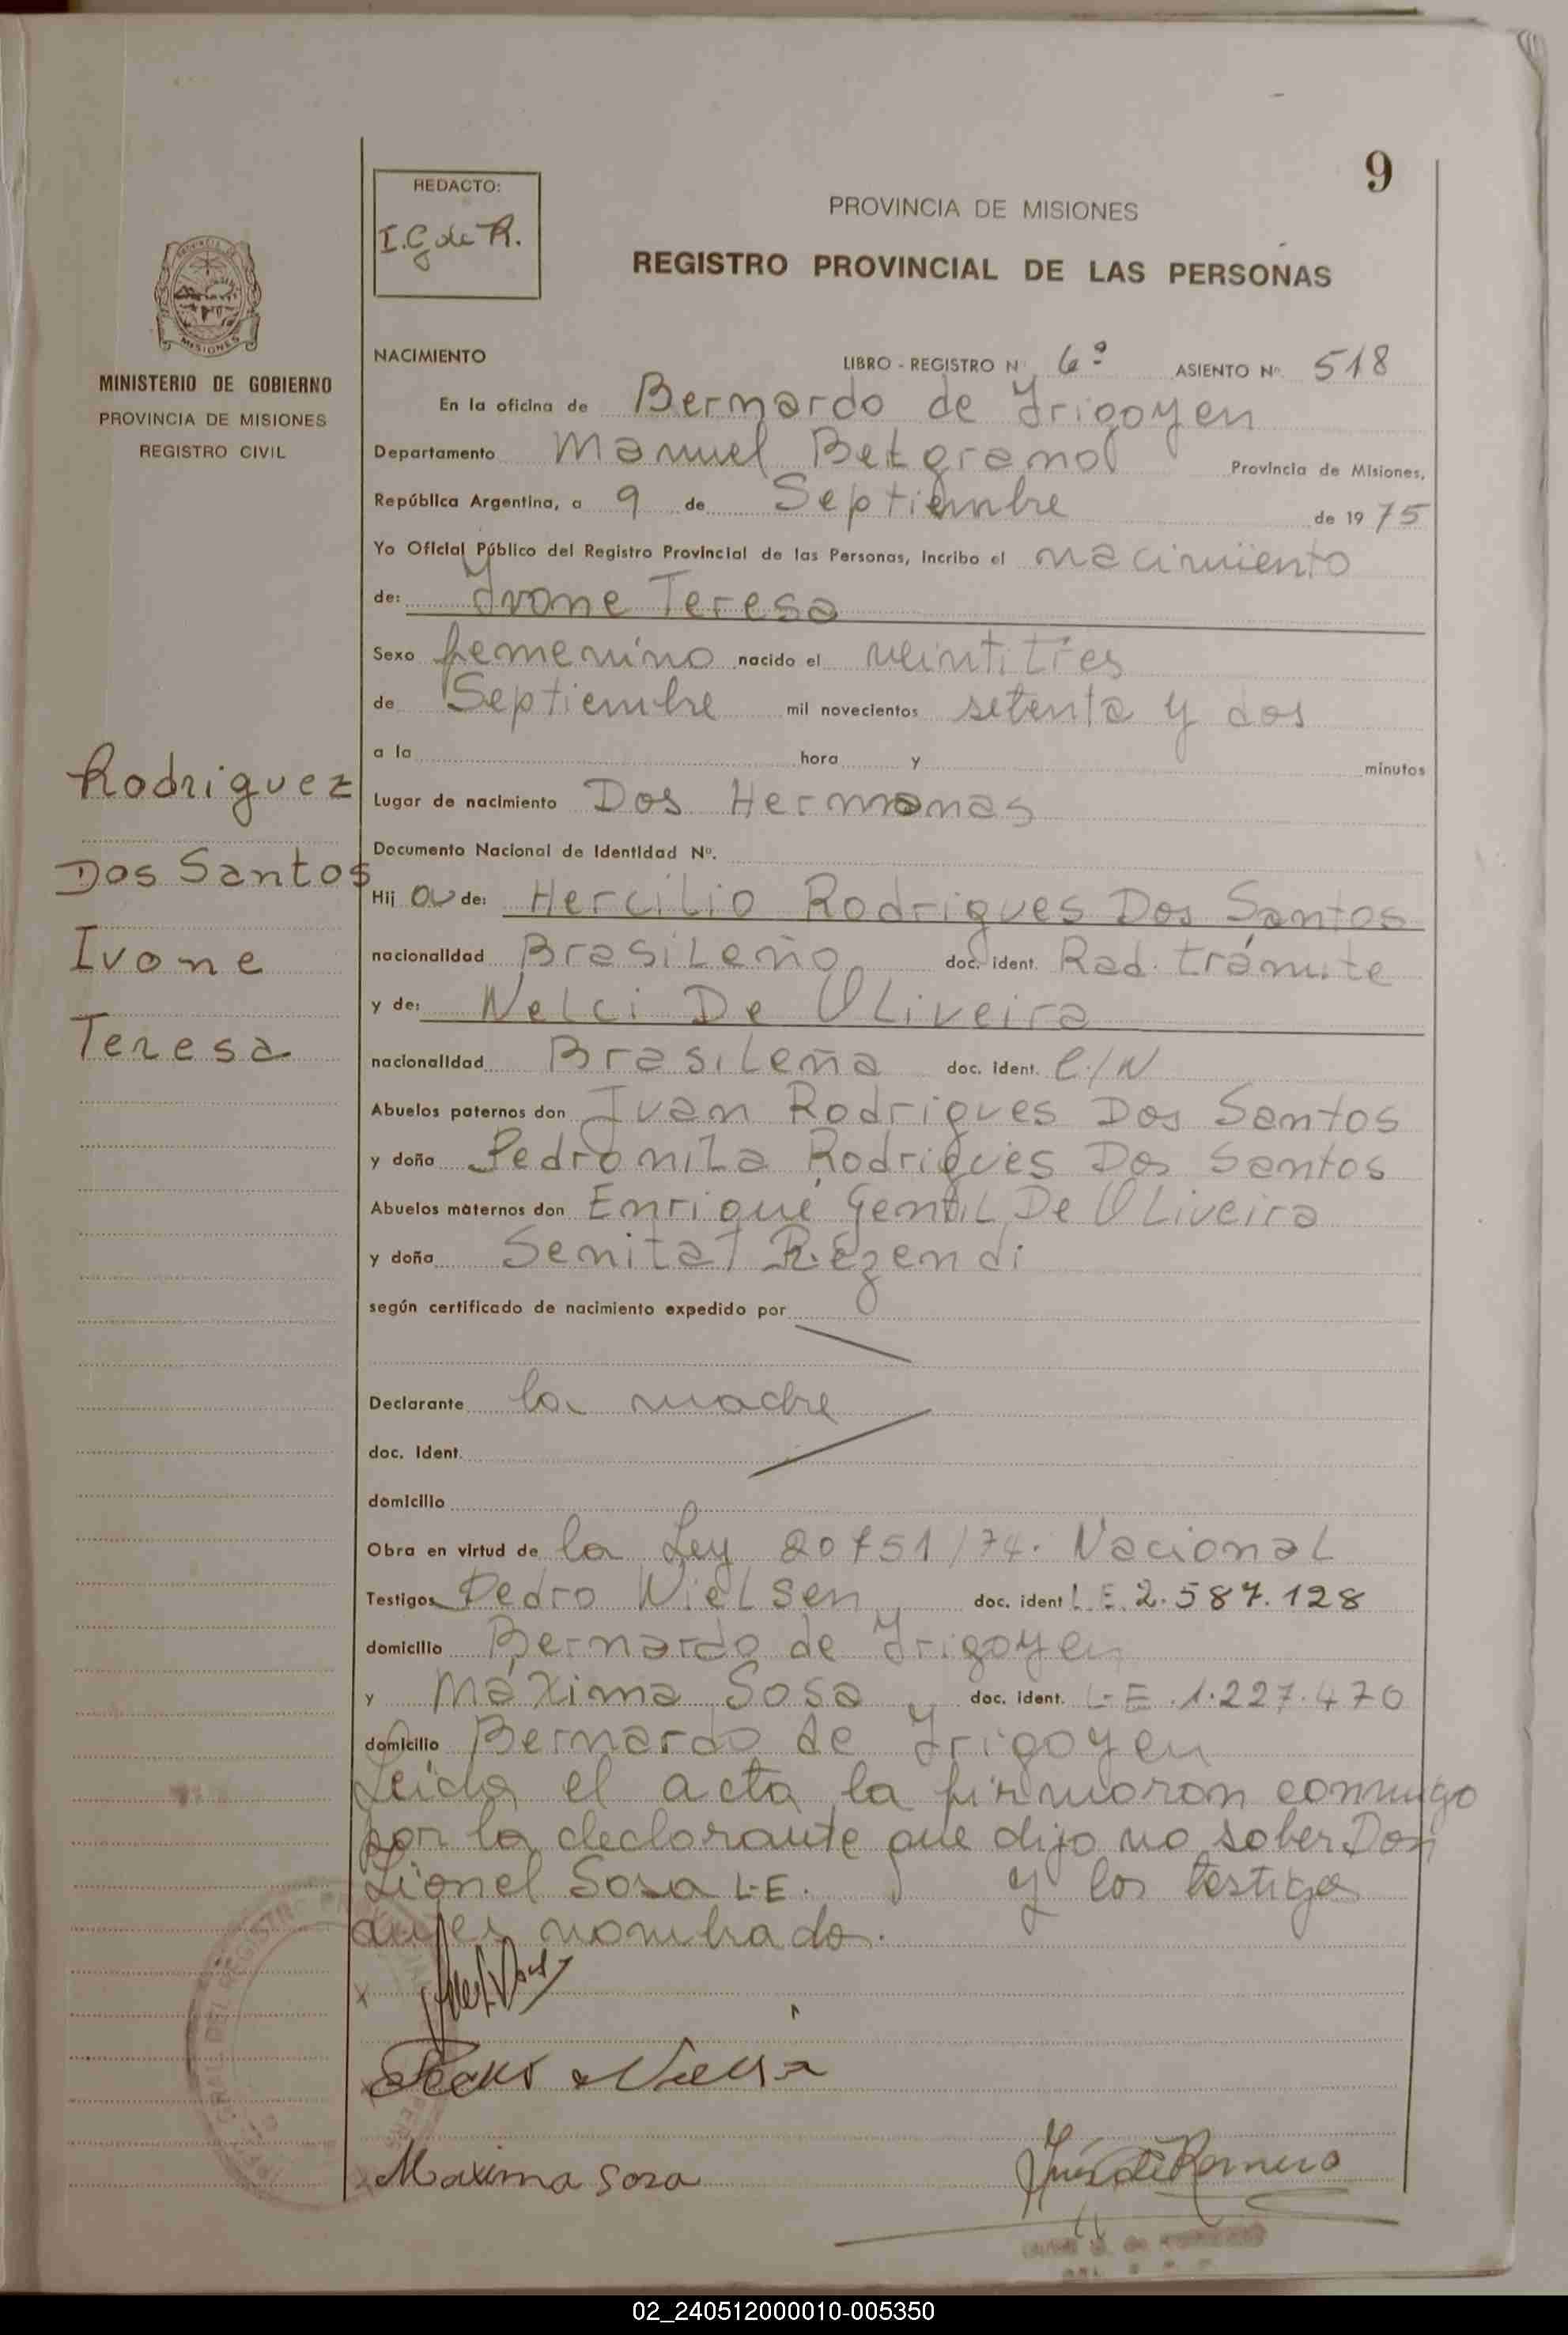 9
REDACTO:
I. G de R.
PROVINCIA DE MISIONES
REGISTRO PROVINCIAL DE LAS PERSONAS
MISIONES
MINISTERIO DE GOBIERNO
PROVINCIA DE MISIONES
REGISTRO CIVIL
NACIMIENTO LIBRO - REGISTRO N 6º ASIENTO Nº 518
En la oficina de Bernardo de Irigoyen
Departamento Manuel Belgrano Provincia de Misiones,
República Argentina, a 9 de Septiembre de 19 75
Yo Oficial Público del Registro Provincial de las Personas, incribo el nacimiento
de: Ivone Teresa
Sexo femenino nacido el veintitres
de Septiembre mil novecientos setenta y dos
a la hora y minutos
Lugar de nacimiento Dos Hermanas
Documento Nacional de Identidad Nº.
Hij a de: Hercilio Rodrigues Dos Santos
nacionalidad Brasileño doc. ident. Rad. trámite
y de: Nelci De Oliveira
nacionalidad Brasileña doc. ident. C/N
Abuelos paternos don Juan Rodrigues Dos Santos
y doña Pedronila Rodrigues Dos Santos
Abuelos maternos don Enrique Gentil De Oliveira
y doña Rezendi
según certificado de nacimiento expedido por
Declarante la madre
doc. Ident.
domicilio
Obra en virtud de la Ley 20751/74. Nacional
Testigos Pedro Nielsen doc. ident L.E. 2.587.128
domicilio Bernardo de Irigoyen
y Máxima Sosa doc. ident. L-E. 1.227.470
domicilio Bernardo de Irigoyen
Leida el acta la firmaron conmigo
por la declarante que dijo no saber Don
Lionel Sosa L-E. y los testigos
antes nombrado.
Rodriguez
Dos Santos
Ivone
Teresa
Maxima Sosa
02_240512000010-005350